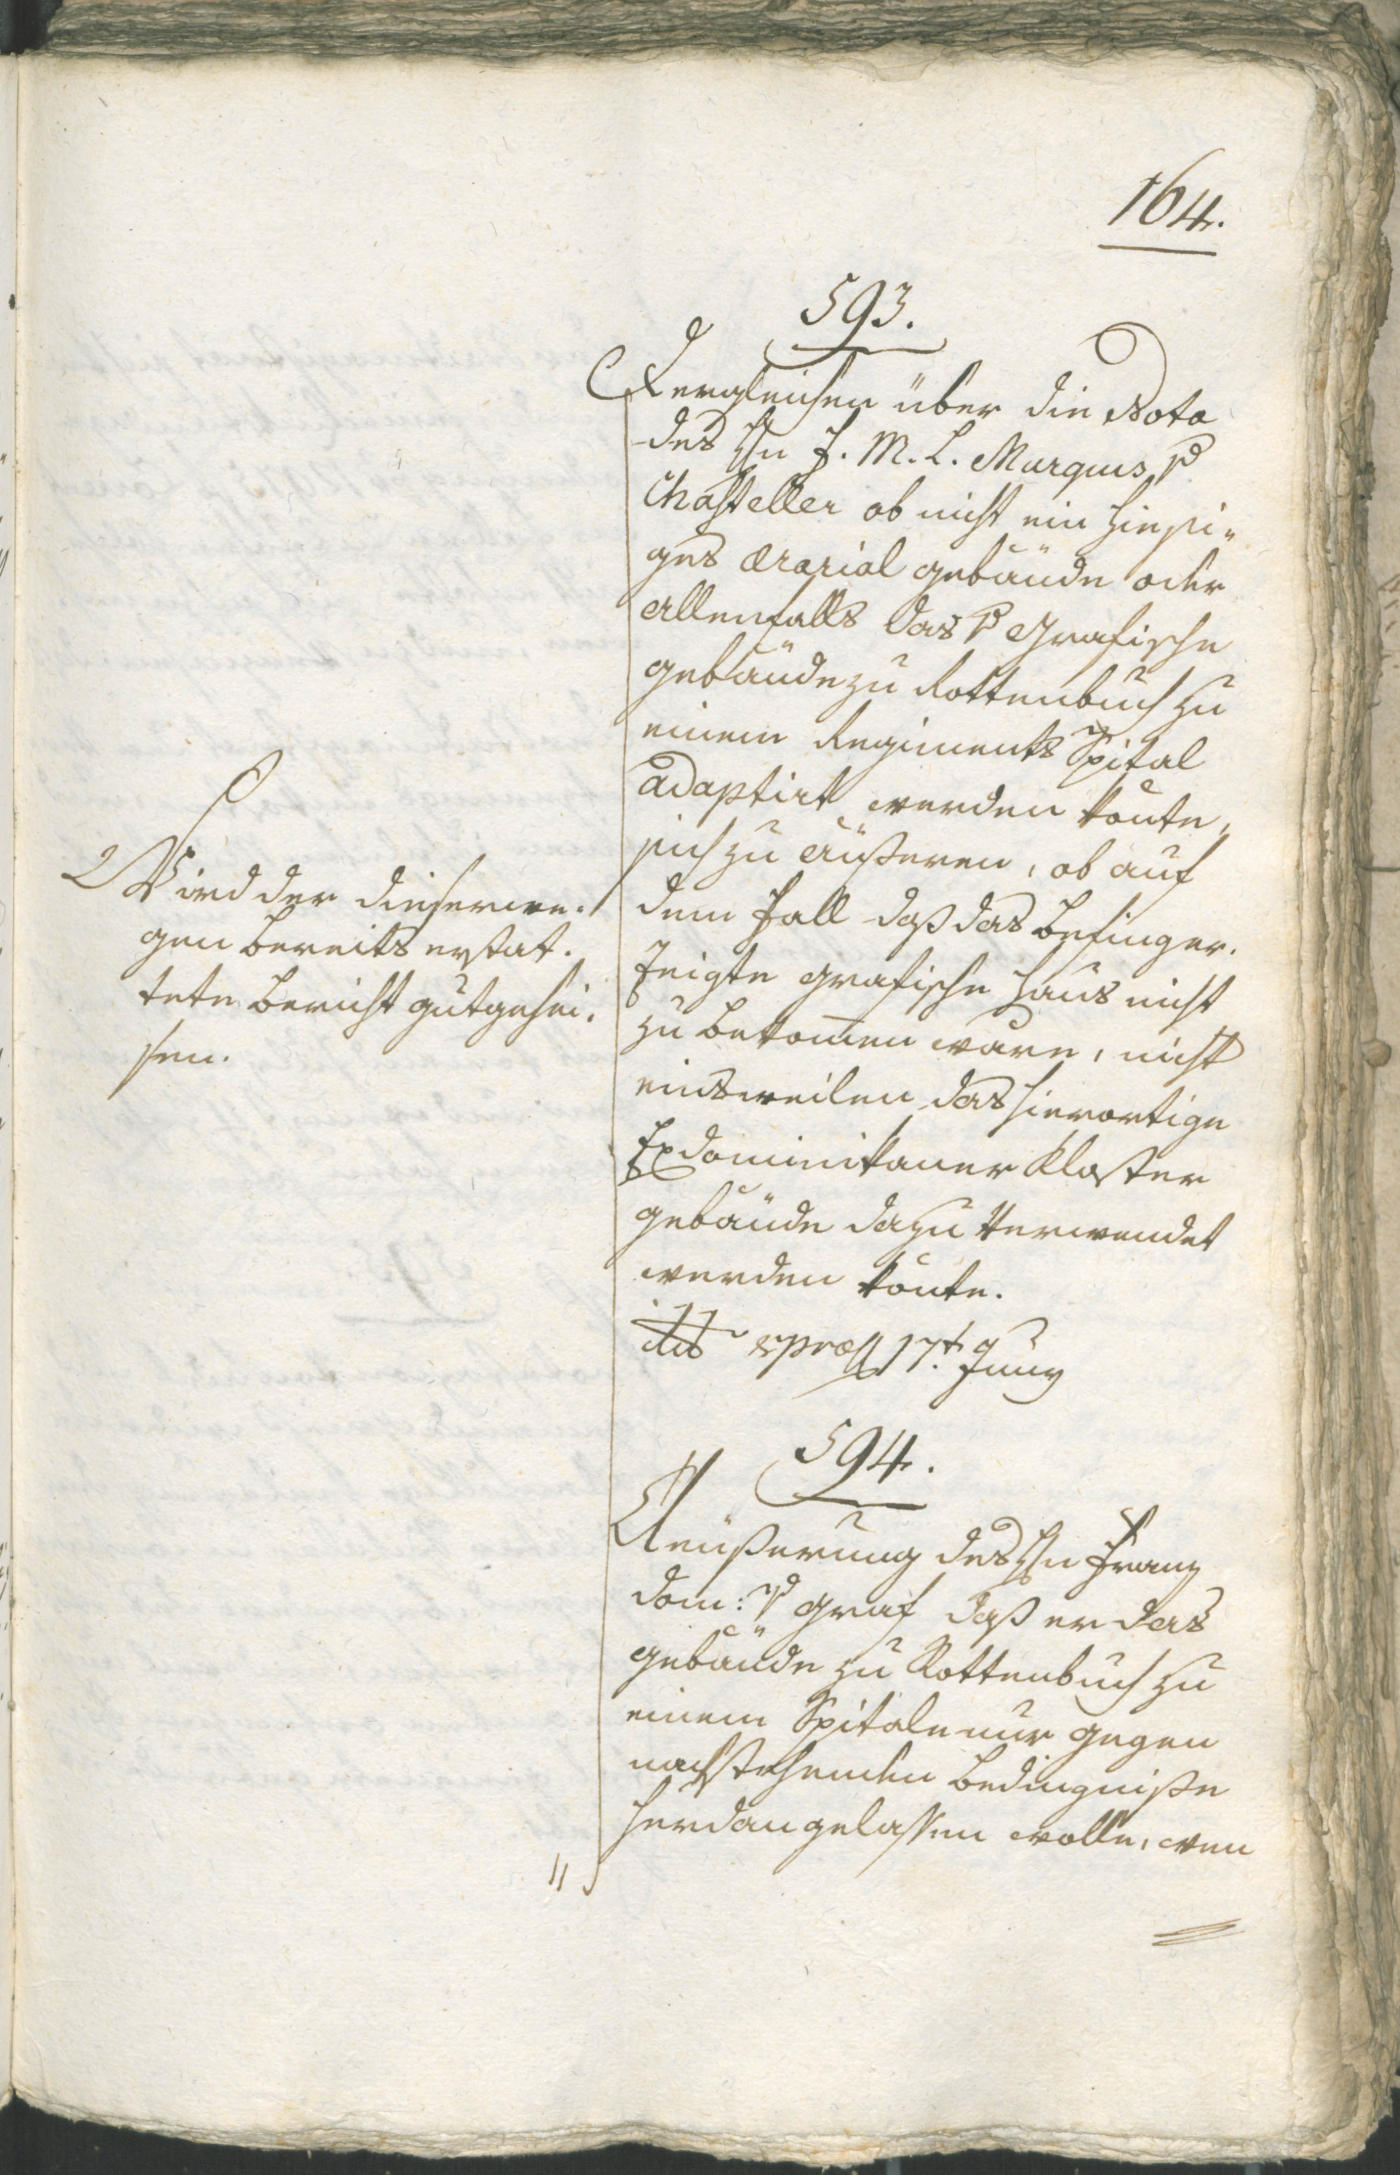 164.
593.
Dergleichen über die Nota
des Hn F. M. L. Marquis v
Chasteller ob nicht ein hiesi„
ges ærarial gebäude oder
allenfalls das v Grafische
gebäude zu Rottenbuch zu
einem Regiments Spital
adaptirt werden könte,
sich zu äußeren, ob auf
dem Fall daß das Besinger.
zeigte grafische Haus nicht
zu bekomen wäre, nicht
einsweilen das hierortige
Exdominikaner Kloster
gebäude dazu Verwendet
werden könte.
præs 17t Juny
Wird der dieserwe.
gen bereits erstat.
tete Bericht gutgehei.
sen.
594.
Aeußerung des Hn Franz
Dom: v Graf daß er das
gebäude zu Rottenbuch zu
einem Spitale nur gegen
nachstehenden Bedingniße
herdangelassen wolle, wen